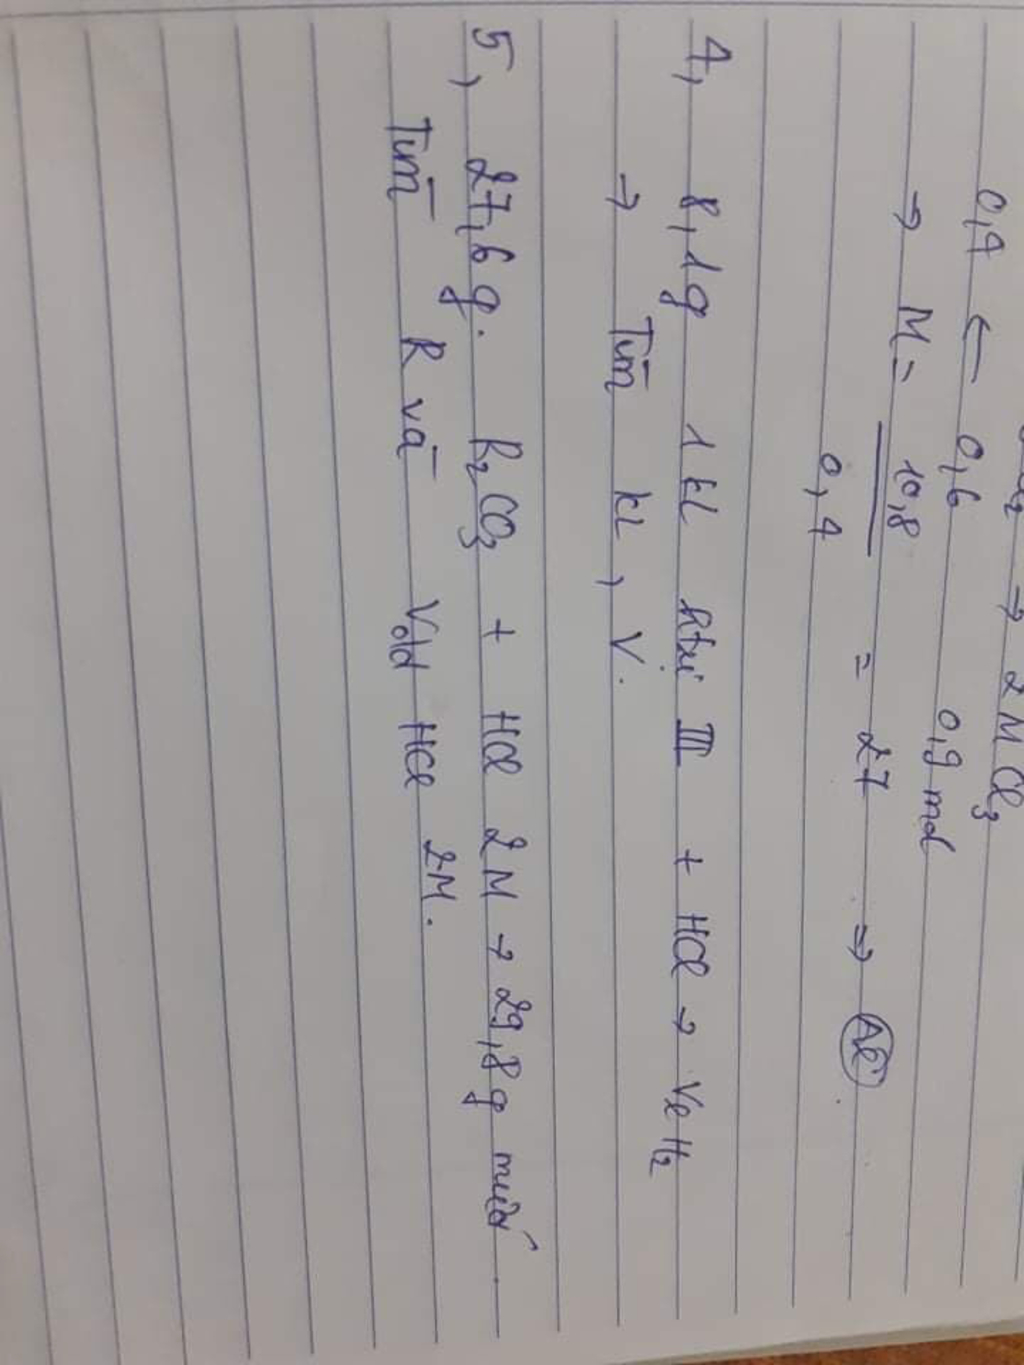 → 2MCl₃
0,4 ← 0,6 0,9 mol
⇒ M = 10,8 / 0,4 = 27 ⇒ Al
4, 8,1g 1 kl htrị III + HCl → Vl H₂
→ Tìm kl, V.
5, 27,6g. R₂CO₃ + HCl 2M → 29,8g muối
Tìm R và Vdd HCl 2M.